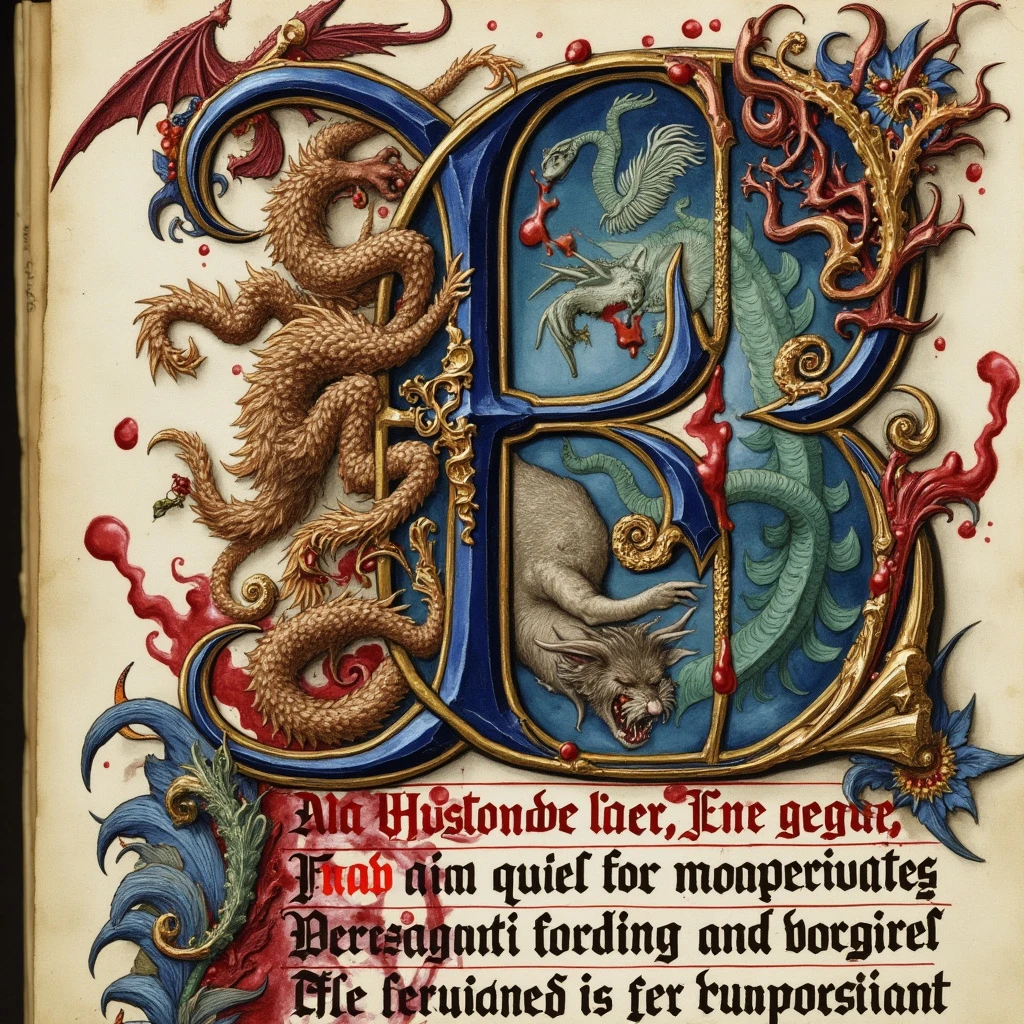 B
Ala Hustonde liaer, Ene gegue,
Fnab aim quiel for moaperivates
Verezaganti fording and vorgirel
Efle feruidned is fer runporsiiant